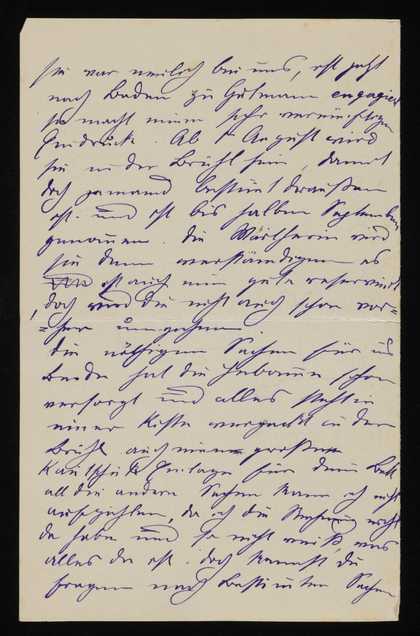 sie war neulich bei uns, ist jetzt
nach Baden zu Gutmann engagiert
sie macht einen sehr vernünftigen
Eindruck. Ab 1ten August wird
sie in der Brühl sein, damit
doch jemand bestimmt draußen
ist. und ist bis halben September
genommen. Die Wärterin wird
sie dann verständigen es
ist auch eine gute reservirt,
doch wird die nicht auch schon vor-
=her
die nöthigen Sachen für uns
Beide hat die Hebamme schon
versorgt und alles steht in
einer Kiste verpackt in der
Brühl auch einen großen
Kautschuk Einlage für dein Bett
all die andern Sachen kann ich nicht
aufzählen, da ich die Rechnung nicht
da habe und so nicht weiß, was
alles da ist. doch kannst du
fragen nach bestimmten Sachen